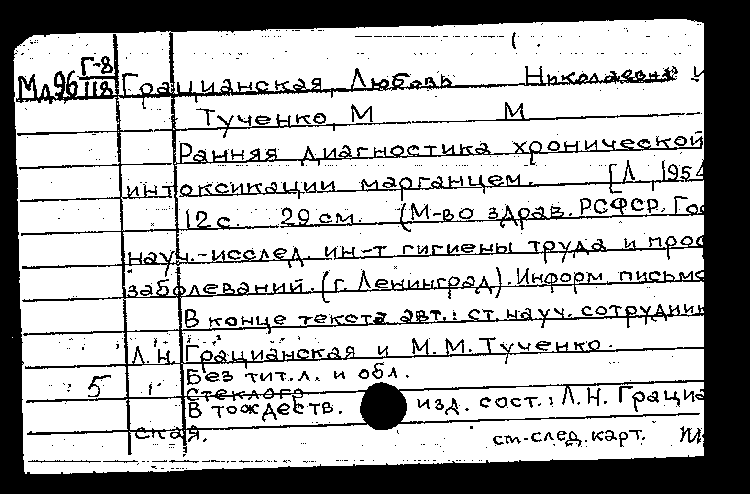 Мд96 Г-8
118
Грацианская, Любовь Николаевна и
Тученко, М М
Ранняя диагностика хронической
интоксикации марганцем. [Л, 1954
12 с. 29 см. (М-во здрав. РСФСР. Гос
науч.-исслед. ин-т гигиены труда и проф
заболеваний. (г. Ленинград). Информ письмо
В конце текста авт.: ст. науч. сотрудник
Л.Н. Грацианская и М.М. Тученко.
Без тит.л. и обл.
5 1 стеклогр
В тождеств. изд. сост.: Л.Н. Грациан
ская.
см-след. карт.